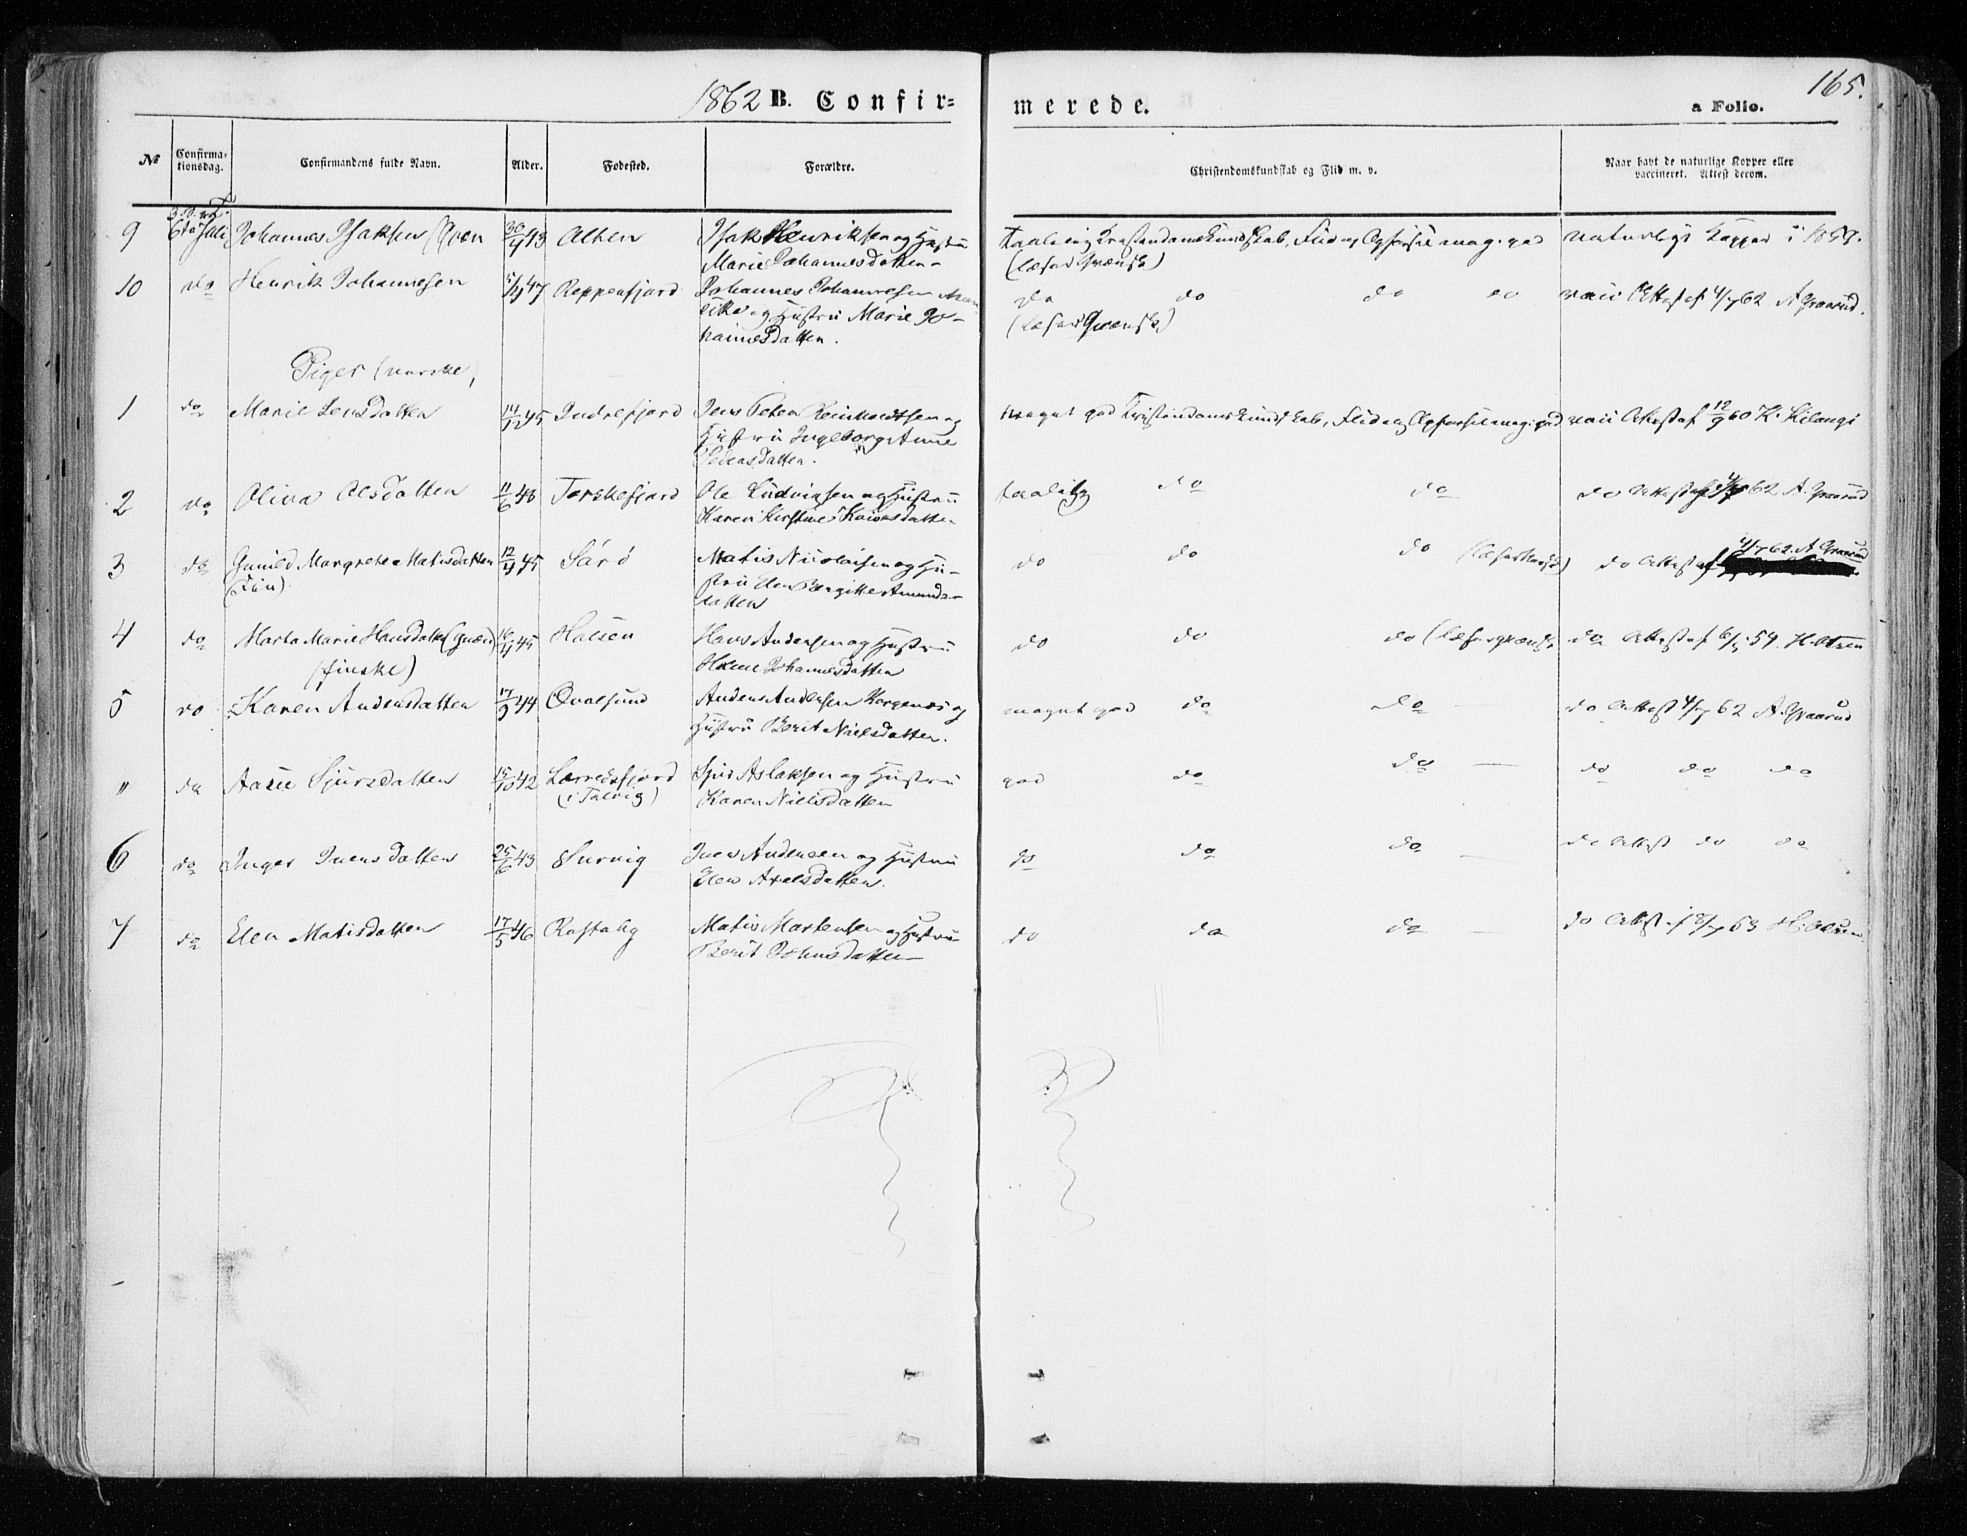 1862 B. Confir=
merede.
165.
a Folio.
№ Confirma=
tionsdag. Confirmandens fulde Navn. Alder. Fødested. Forældre. Christendomskundskab og Flid m. v. Naar havt de naturlige Kopper eller
vaccineret. Attest derom.
9 6te Juli Johannes Isaksen (Qvæn 30/4 43 Alten Isak Henriksen og Hustru
Marie Johannesdatter
Taalelig Kristendomskundskab, Flid og Opførsel meg. god naturlige Kopper i
(læser Qvænsk)
10 do Henrik Johannesen 47 Reppenfjord Johannes Johannesen
og Hustru Marie Jo-
hannesdatter.
do do do do vacc Attest af 4/7 62 A Graarud.
(læser Qvænsk)
Piger (norske)
1 do Marie Jensdatter 14/12 45 Indrefjord Jens Peter Reinholdtsen og
Hustru Ingeborg Anne
Pedersdatter.
meget god Kristendomskundskab, Flid og Opførsel meg. god vacc Attest af 12/9 60 K. Kilangi
2 do Oliva Olsdatter 11/6 48 Torskefjord Ole Ludvigsen og Hustru
Karen Kirstine
taalelig do do do Attest af 4/7 62 A. Graarud
3 do Gunild Margrethe Matisdatter 12/4 45 Sørø Matis Nicolaisen og Hu-
(Fin) stru Elen Bergitte Amunds-
datter
do do do (læser Norsk) do Attest af 4/7 62. A Graarud
4 do Marta Marie Hansdatter (Qvæn) 16/4 45 Hassen Hans Andersen og Hustru
(finske) Johannesdatter
do do do (læser qvænsk do Attest af 59.
5 do Karen Andersdatter 17/9 44 Qvalsund Anders Andersen Kargenes og
Hustru Berit Nielsdatter.
meget god do do do Attest 4/7 62 A. Graarud
" do Aasele Sjursdatter 15/10 42 Lerredsfjord Sjur Aslaksen og Hustru
(i Talvig) Karen Nielsdatter
god do do do do do
6 do Inger Iversdatter 25/6 43 Survig Iver Andersen og Hustru
Elen Axelsdatter.
do do do do Attest do do
7 do Elen Matisdatter 17/5 46 Rastaby Matis Mortensen og Hustru
Berit Johnsdatter
do do do do Attest af 8/7 53